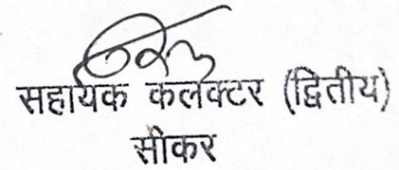 सहायक कलेक्टर (द्वितीय)
सीकर